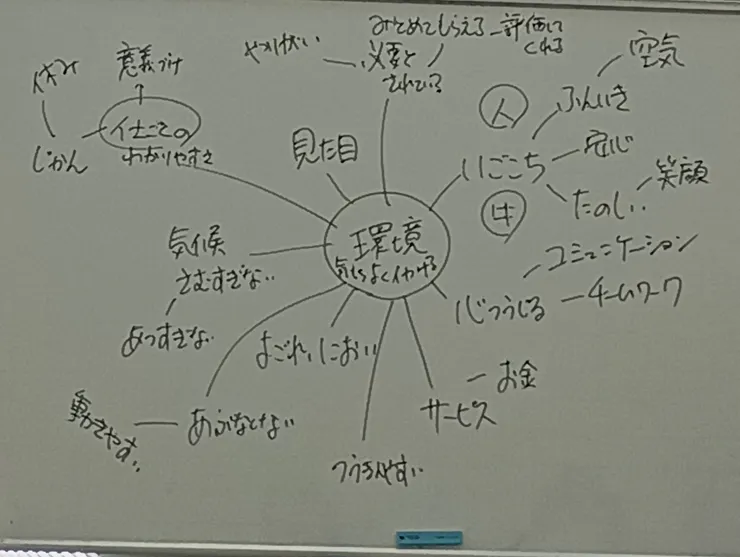 みとめてもらえる 評価して
くれる
やりがい
必要と
されている
空気
人
ふんいき
休み
意義づけ
仕ごとの
わかりやすさ
じかん
見た目
いごこち
安心
牛
たのしい
笑顔
環境
気もちよく仕ができる
気候
さむすぎない
あつすぎない
コミュニケーション
心つうじる
チームワーク
よごれ、におい
お金
サービス
あぶなくない
動きやすい
つうきんやすい